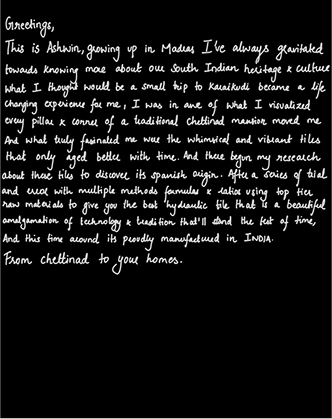 Greetings,
This is Ashwin, growing up in Madras I've always gravitated
towards knowing more about our South Indian heritage & culture
What I thought would be a small trip to Karaikudi became a life
changing experience for me, I was in awe of what I visualized
every pillar & corner of a traditional chettinad mansion moved me
And what truly fascinated me were the whimsical and vibrant tiles
that only aged better with time. And there begun my research
about these tiles to discover its spanish origin. After a series of trial
and error with multiple methods formulas & ratios using top tier
raw materials to give you the best hydraulic tile that is a beautiful
amalgamation of technology & tradition that'll stand the test of time,
And this time around its proudly manufactured in INDIA.
From chettinad to your homes.